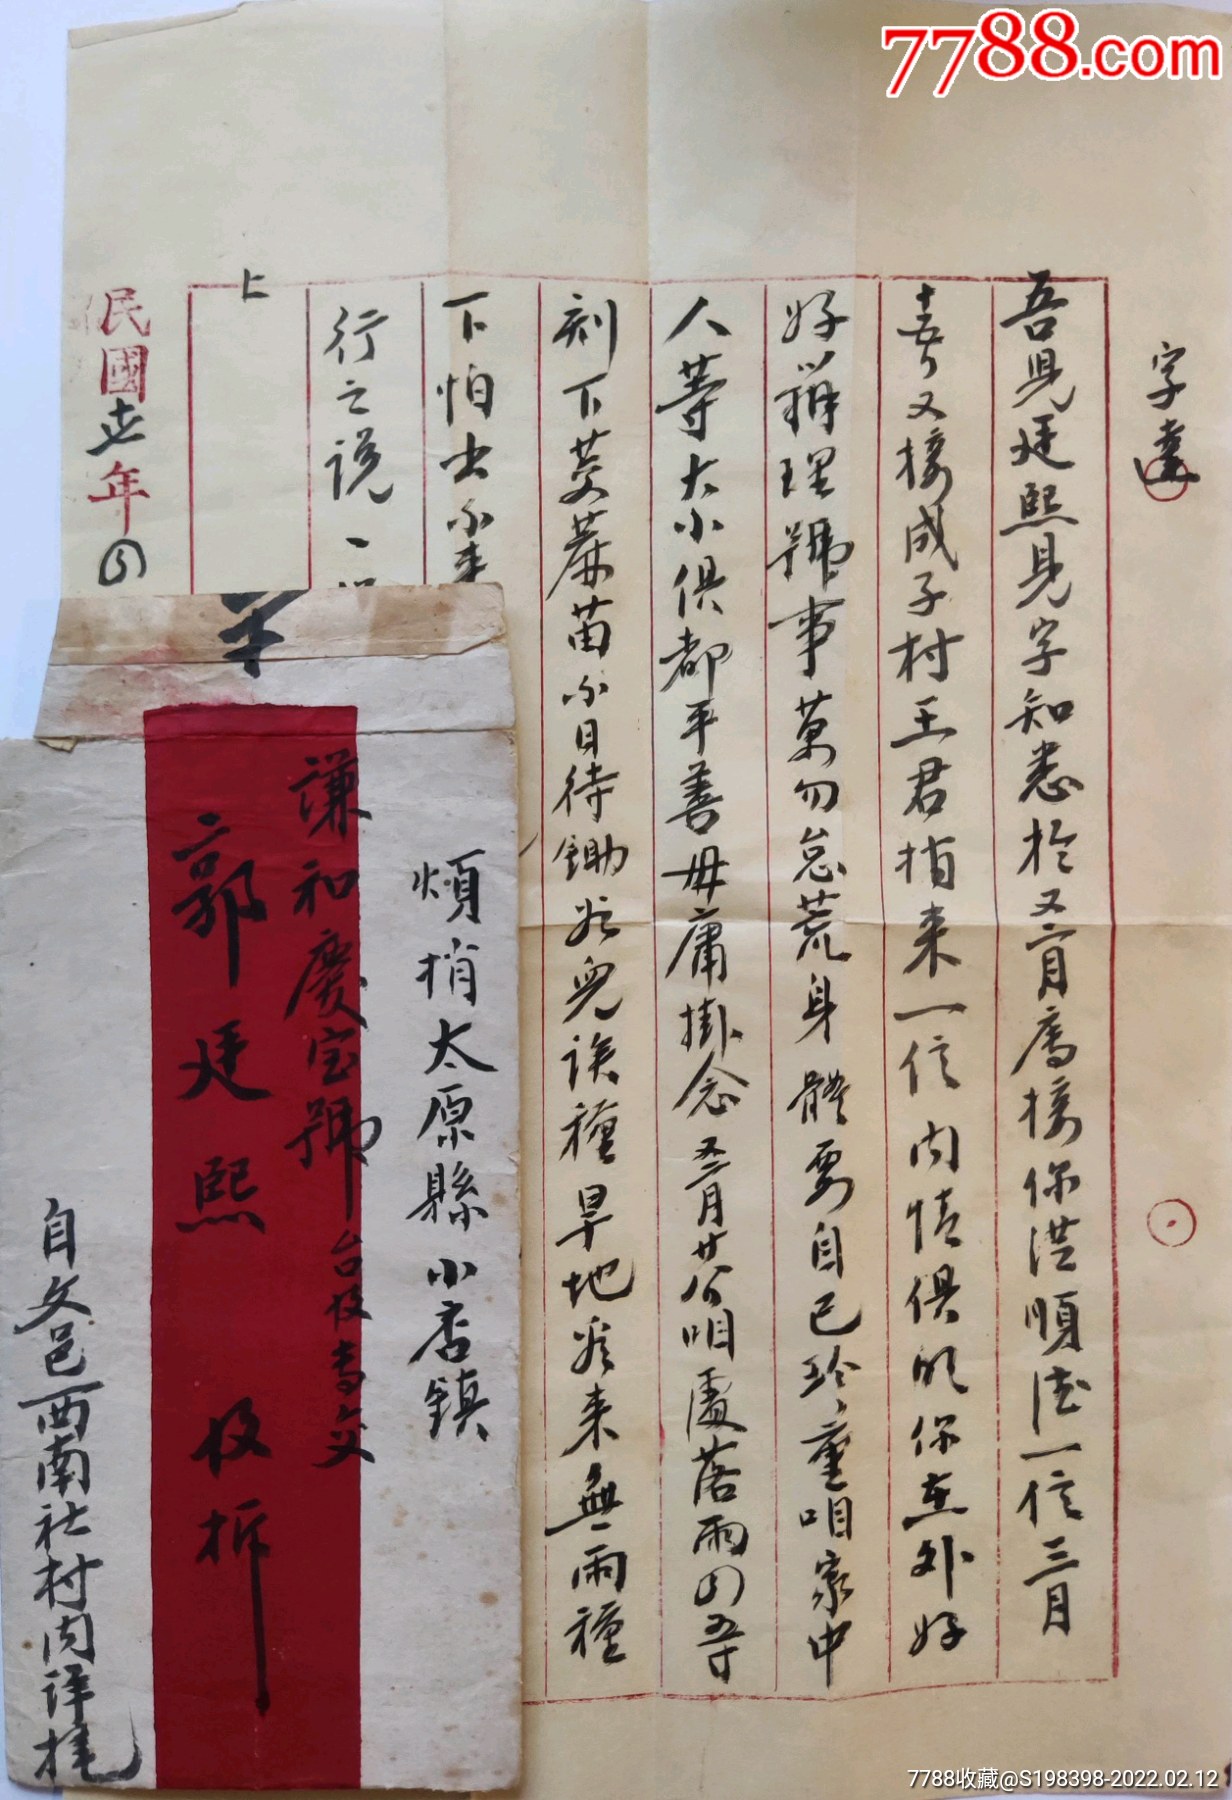 7788.com
字達
吾兒廷熙見字知悉於又二月底接你洪順德一信三月
十五日又接成子村王君捎来一信内情俱明你在外好
好辦理號事萬勿怠荒身體要自己珍重咱家中
人等大小俱都平善毋庸掛念又二月廿八咱處落雨四五寸
刻下茭蔴苗不日待鋤 種旱地 来無雨種
下怕出不来
行之說一
上
民國 年四
字
煩捎太原縣小店鎮
謙和慶宝號台收專交
郭廷熙收拆
自文邑西南社村内詳揎
7788收藏@S198398-2022.02.12